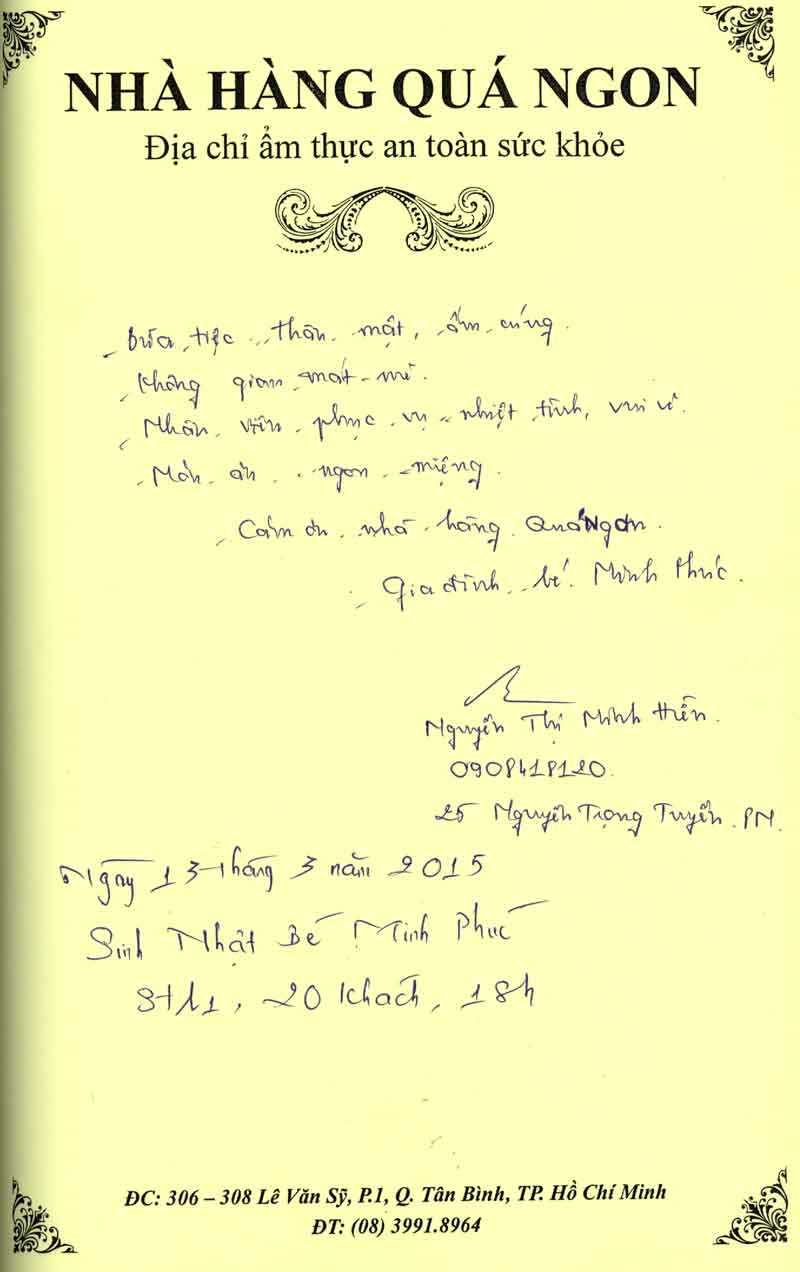 NHÀ HÀNG QUÁ NGON
Địa chỉ ẩm thực an toàn sức khỏe
Bữa tiệc thân mật, ấm cúng.
Không gian mát mẻ.
Nhân viên phục vụ nhiệt tình, vui vẻ.
Món ăn ngon miệng.
Cảm ơn nhà hàng Quá Ngon.
Gia đình bé Minh Phúc.
Nguyễn Thị Minh Hiền.
25 Nguyễn Trọng Tuyển. PN.
Ngày 13 tháng 3 năm 2015
Sinh Nhật Bé Minh Phúc
, 20 khách, 18h
ĐC: 306 – 308 Lê Văn Sỹ, P.1, Q. Tân Bình, TP. Hồ Chí Minh
ĐT: (08) 3991.8964